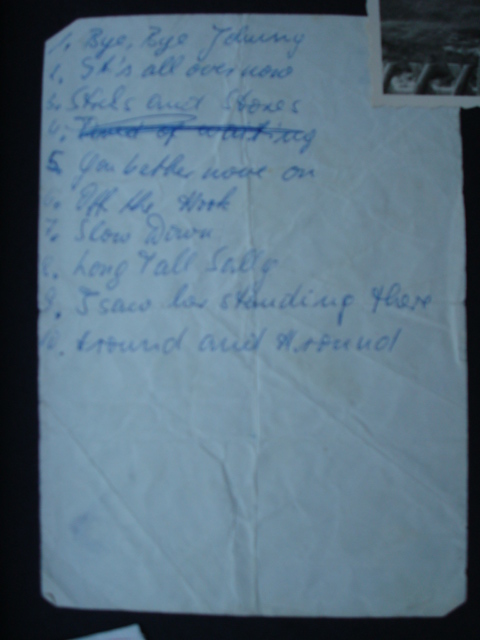 1. Bye, Bye Johnny
2. It's all over now
3. Sticks and Stones
4. Tired of waiting
5. You better move on
6. Off the Hook
7. Slow Down
8. Long Tall Sally
9. I saw her standing there
10. Around and Around